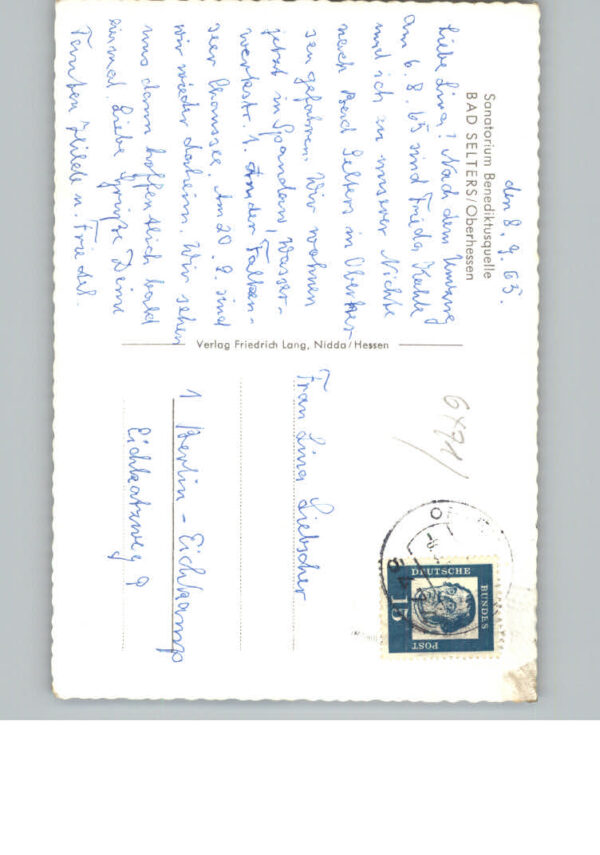 Sanatorium Benediktusquelle
BAD SELTERS/Oberhessen
den 8. 9. 65.
Liebe Lina! Nach dem Umzug
am 6. 8. 65 sind Frieda
und ich zu unserer Nichte
nach Bad Selters in
sen gefahren. Wir wohnen
jetzt in Spandau, Wasser-
werkstr. 1. An der Falken-
seer Chaussee. Am 20. 9. sind
wir wieder daheim. Wir sehen
uns dann hoffentlich bald
einmal. Liebe Grüße Deine
Tanten Hilde u. Friedel.
Verlag Friedrich Lang, Nidda/Hessen
6471/
DEUTSCHE
BUNDES
POST
15
Frau Lina Liebscher
1 Berlin - Eichkamp
Eichkatzweg 9